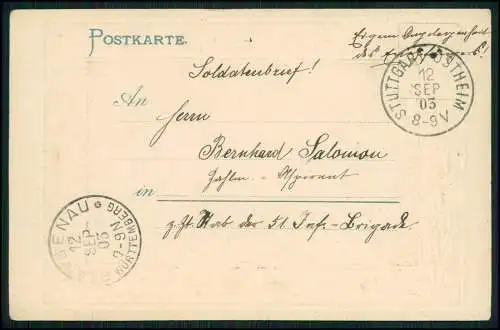 POSTKARTE.
Eigene Angelegenheit
des
STUTTGART/OSTHEIM
12
SEP
03
8-9V
Soldatenbrief!
An
Herrn
Bernhard Salomon
Zahlm. - Aspirant
in
z. Zt. Stab der 51 Inf.-Brigade.
LANGENAU
12
SEP-
03
7-9N
WÜRTTEMBERG